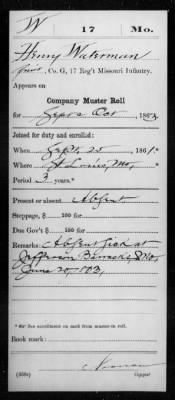 W 17 Mo.
Henry Waterman
Co. G, 17 Reg't Missouri Infantry.
Appears on
Company Muster Roll
for Sept & Oct, 1863.
Joined for duty and enrolled:
When Sept. 25, 1861*
Where St Louis, Mo,
Period 3 years.*
Present or absent Absent
Stoppage, $ 100 for
Due Gov't $ 100 for
Remarks: Absent sick at
Jefferson Barracks, Mo,
June 20, 
*See enrollment on card from muster-in roll.
Book mark:
(358c) Copyist.